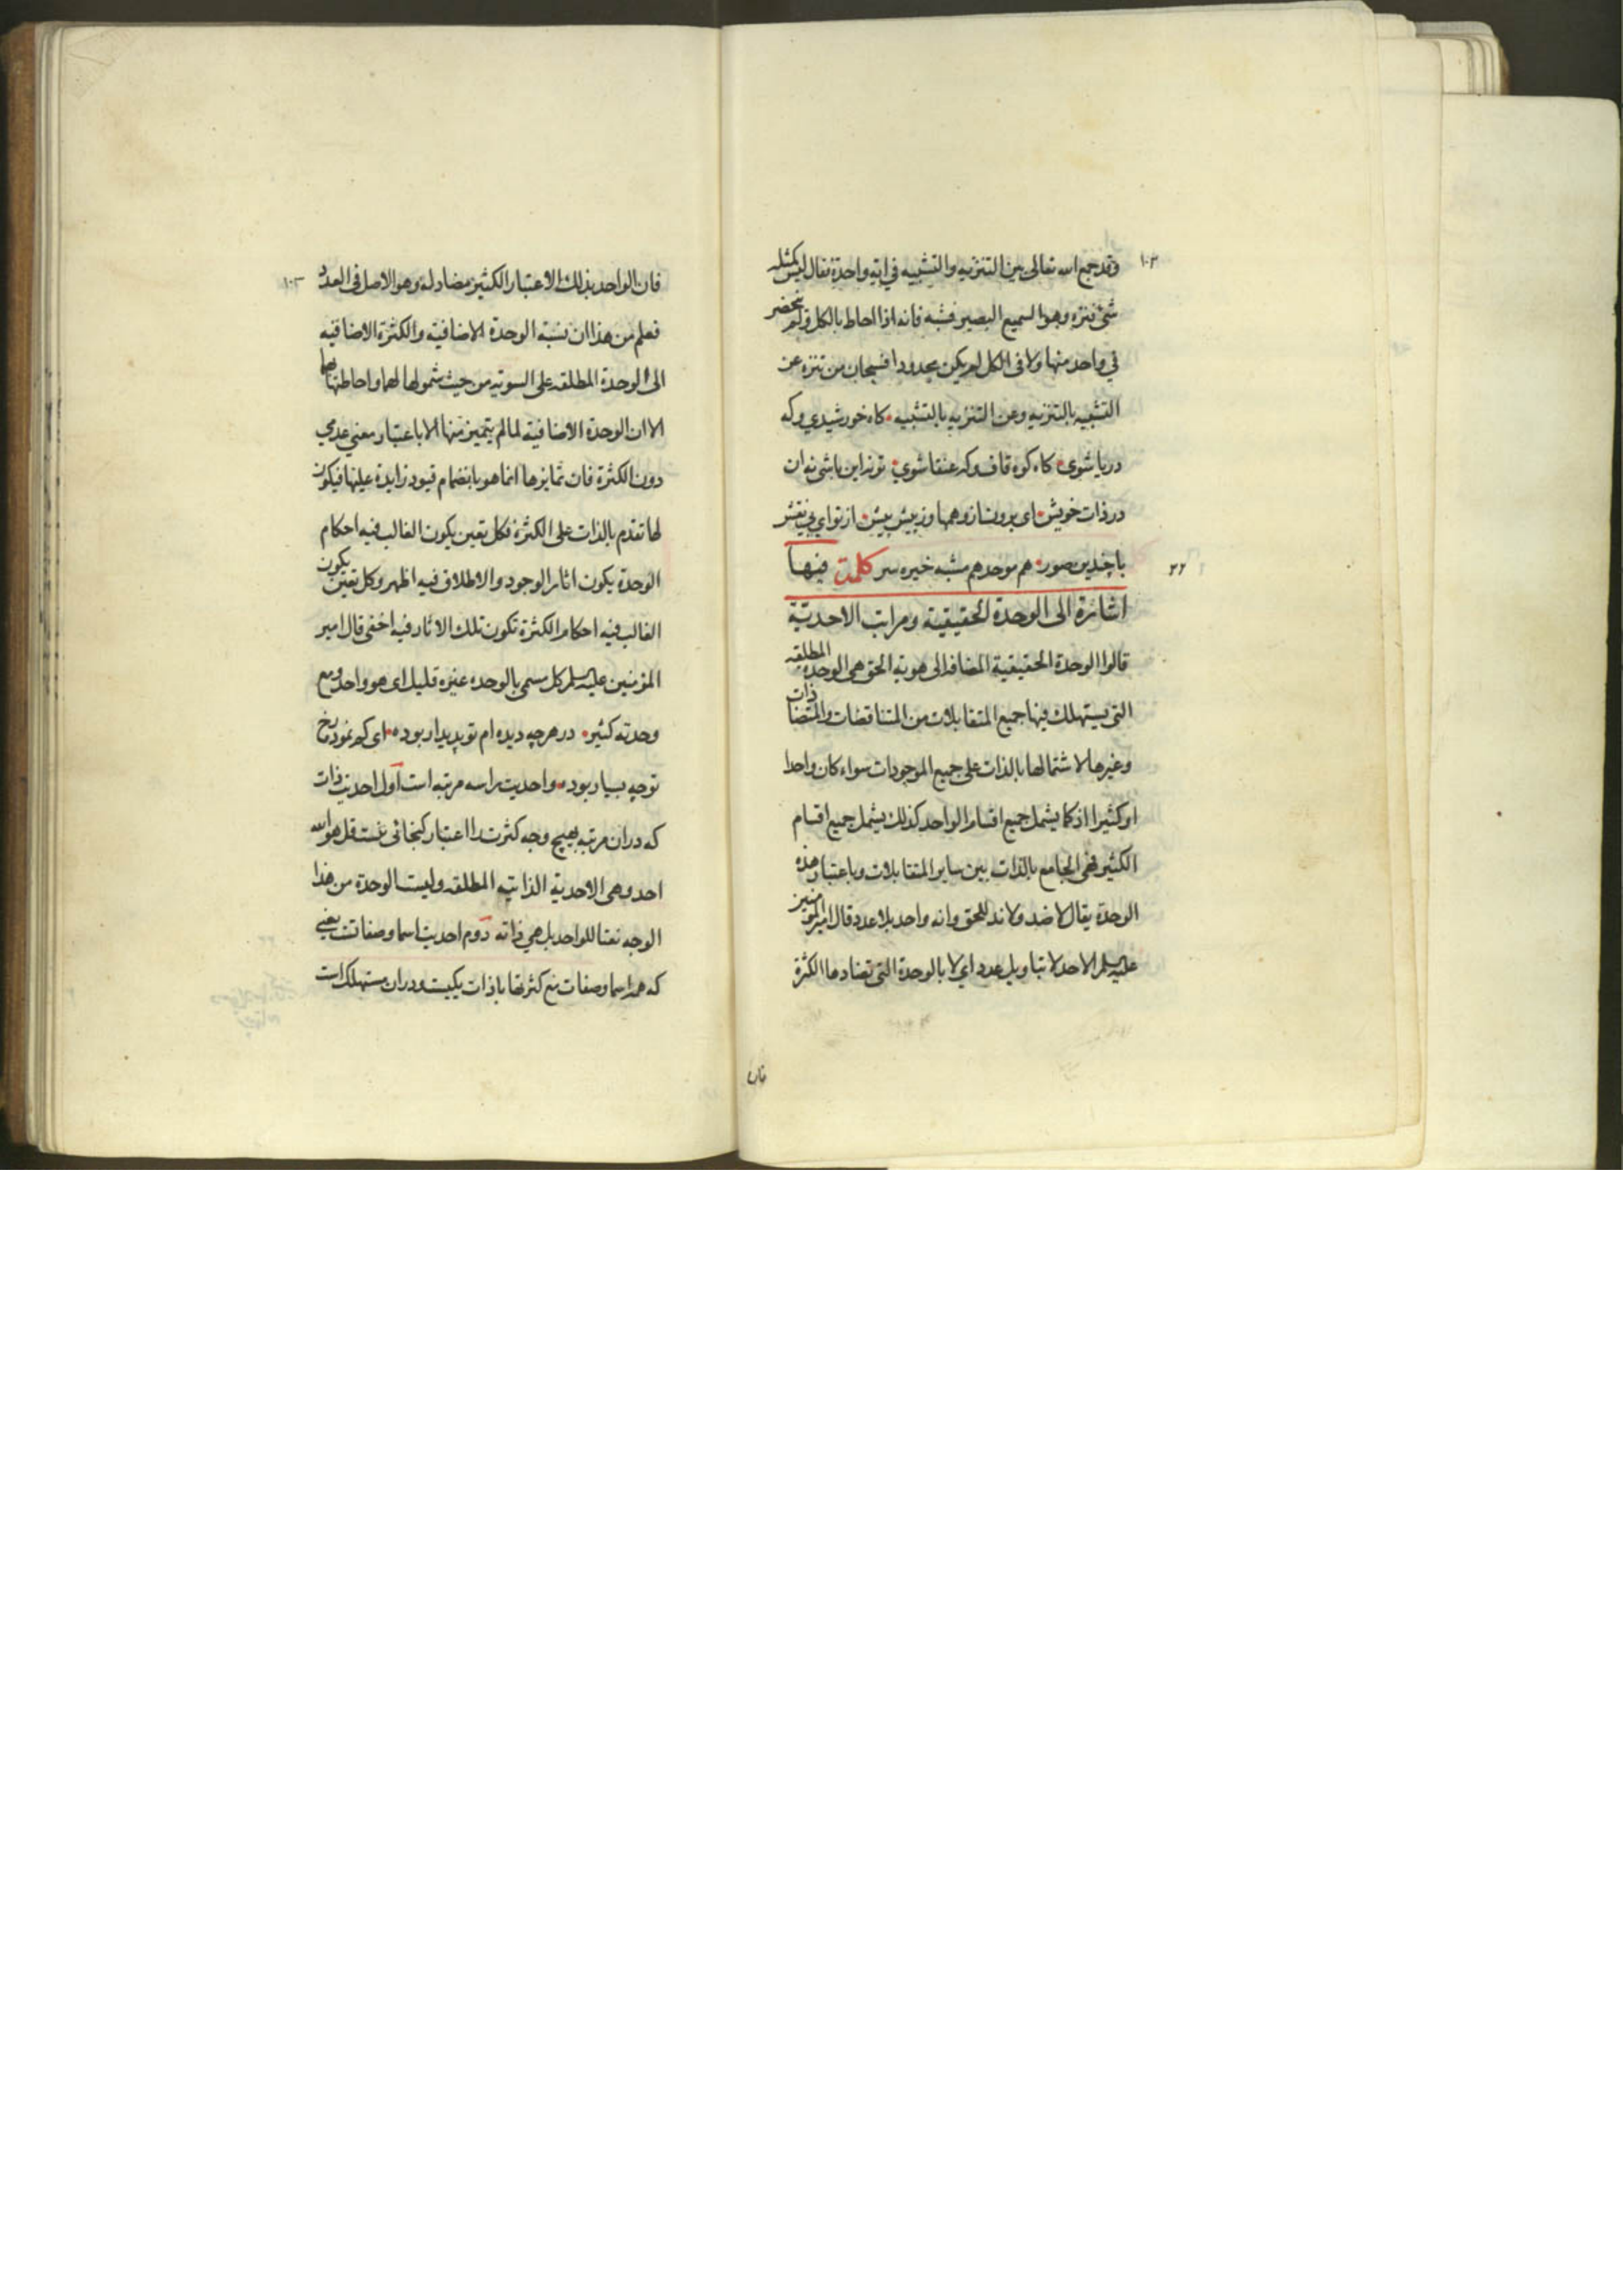 ١٠٢
وقد جمع الله تعالى بين التنزيه والتشبيه في اية واحدة فقال ليس كمثله
شئ فنزه وهو السميع البصير فشبه فانه اذا احاط بالكل ولم ينحصر
في واحد منها ولا في الكل لم يكن محدودا فسبحان من تنزه عن
التشبيه بالتنزيه وعن التنزيه بالتشبيه • كاه خورشيدي وكه
دريا شوى • كاه كوه قاف وكه عنقا شوي • تو نه اين باشى نه ان
در ذات خويش • اى برون از وهمها وز بيش بيش • از تو اى بي نقش
با چندين صور • هم موحد هم مشبه خيره سر كلمة فيها
٢٢
اشارة الى الوحدة الحقيقية ومراتب الاحدية
قالوا الوحدة الحقيقية المضافه الى هوية الحق هى الوحدة المطلقه
التى يستهلك فيها جميع المتقابلات من المتناقضات والمتضادات
وغيرها لاشتمالها بالذات على جميع الموجودات سواء كان واحدا
او كثيرا اذ كما يشمل جميع اقسام الواحد كذلك يشمل جميع اقسام
الكثير فهى الجامع بالذات بين ساير المتقابلات وباعتبار هذه
الوحدة يقال لا ضد ولا ند للحق وانه واحد بلا عدد قال امير المؤمنين
عليه السلم الاحد لا بتاويل عدد اي لا بالوحدة التى تضادها الكثرة
فان
١٠٣
فان الواحد بذلك الاعتبار الكثير مضاد له وهو الاصل فى العدد
فعلم من هذا ان نسبة الوحدة الاضافية والكثرة الاضافيه
الى الوحدة المطلقه على السويه من حيث شمولها لهما واحاطتها بهما
الا ان الوحدة الاضافية لما لم يتميز منها الا باعتبار معنى عدمي
دون الكثرة فان تمايزها انما هو بانضمام قيود زايدة عليها فيكون
لها تقدم بالذات على الكثرة فكل تعين يكون الغالب فيه احكام
الوحدة يكون اثار الوجود والاطلاق فيه اظهر وكل تعين يكون
الغالب فيه احكام الكثرة تكون تلك الاثار فيه اخفى قال امير
المؤمنين عليه السلم كل مسمى بالوحده غيره قليل اى هو واحد ومع
وحدته كثير • در هرچه ديده ام تو پديدار بوده • اى كم نموده رخ
توچه بسيار بوده • واحديت را سه مرتبه است اول احديت ذات
كه دران مرتبه بهيچ وجه كثرت را اعتبار كنجائى نيست قل هو الله
احد وهى الاحدية الذاتيه المطلقه وليست الوحدة من هذا
الوجه نعتا للواحد بل هي ذاته دوم احديت اسما وصفاتست يعنى
كه همه اسما وصفات مع كثرتها با ذات يكيست ودران مستهلك است